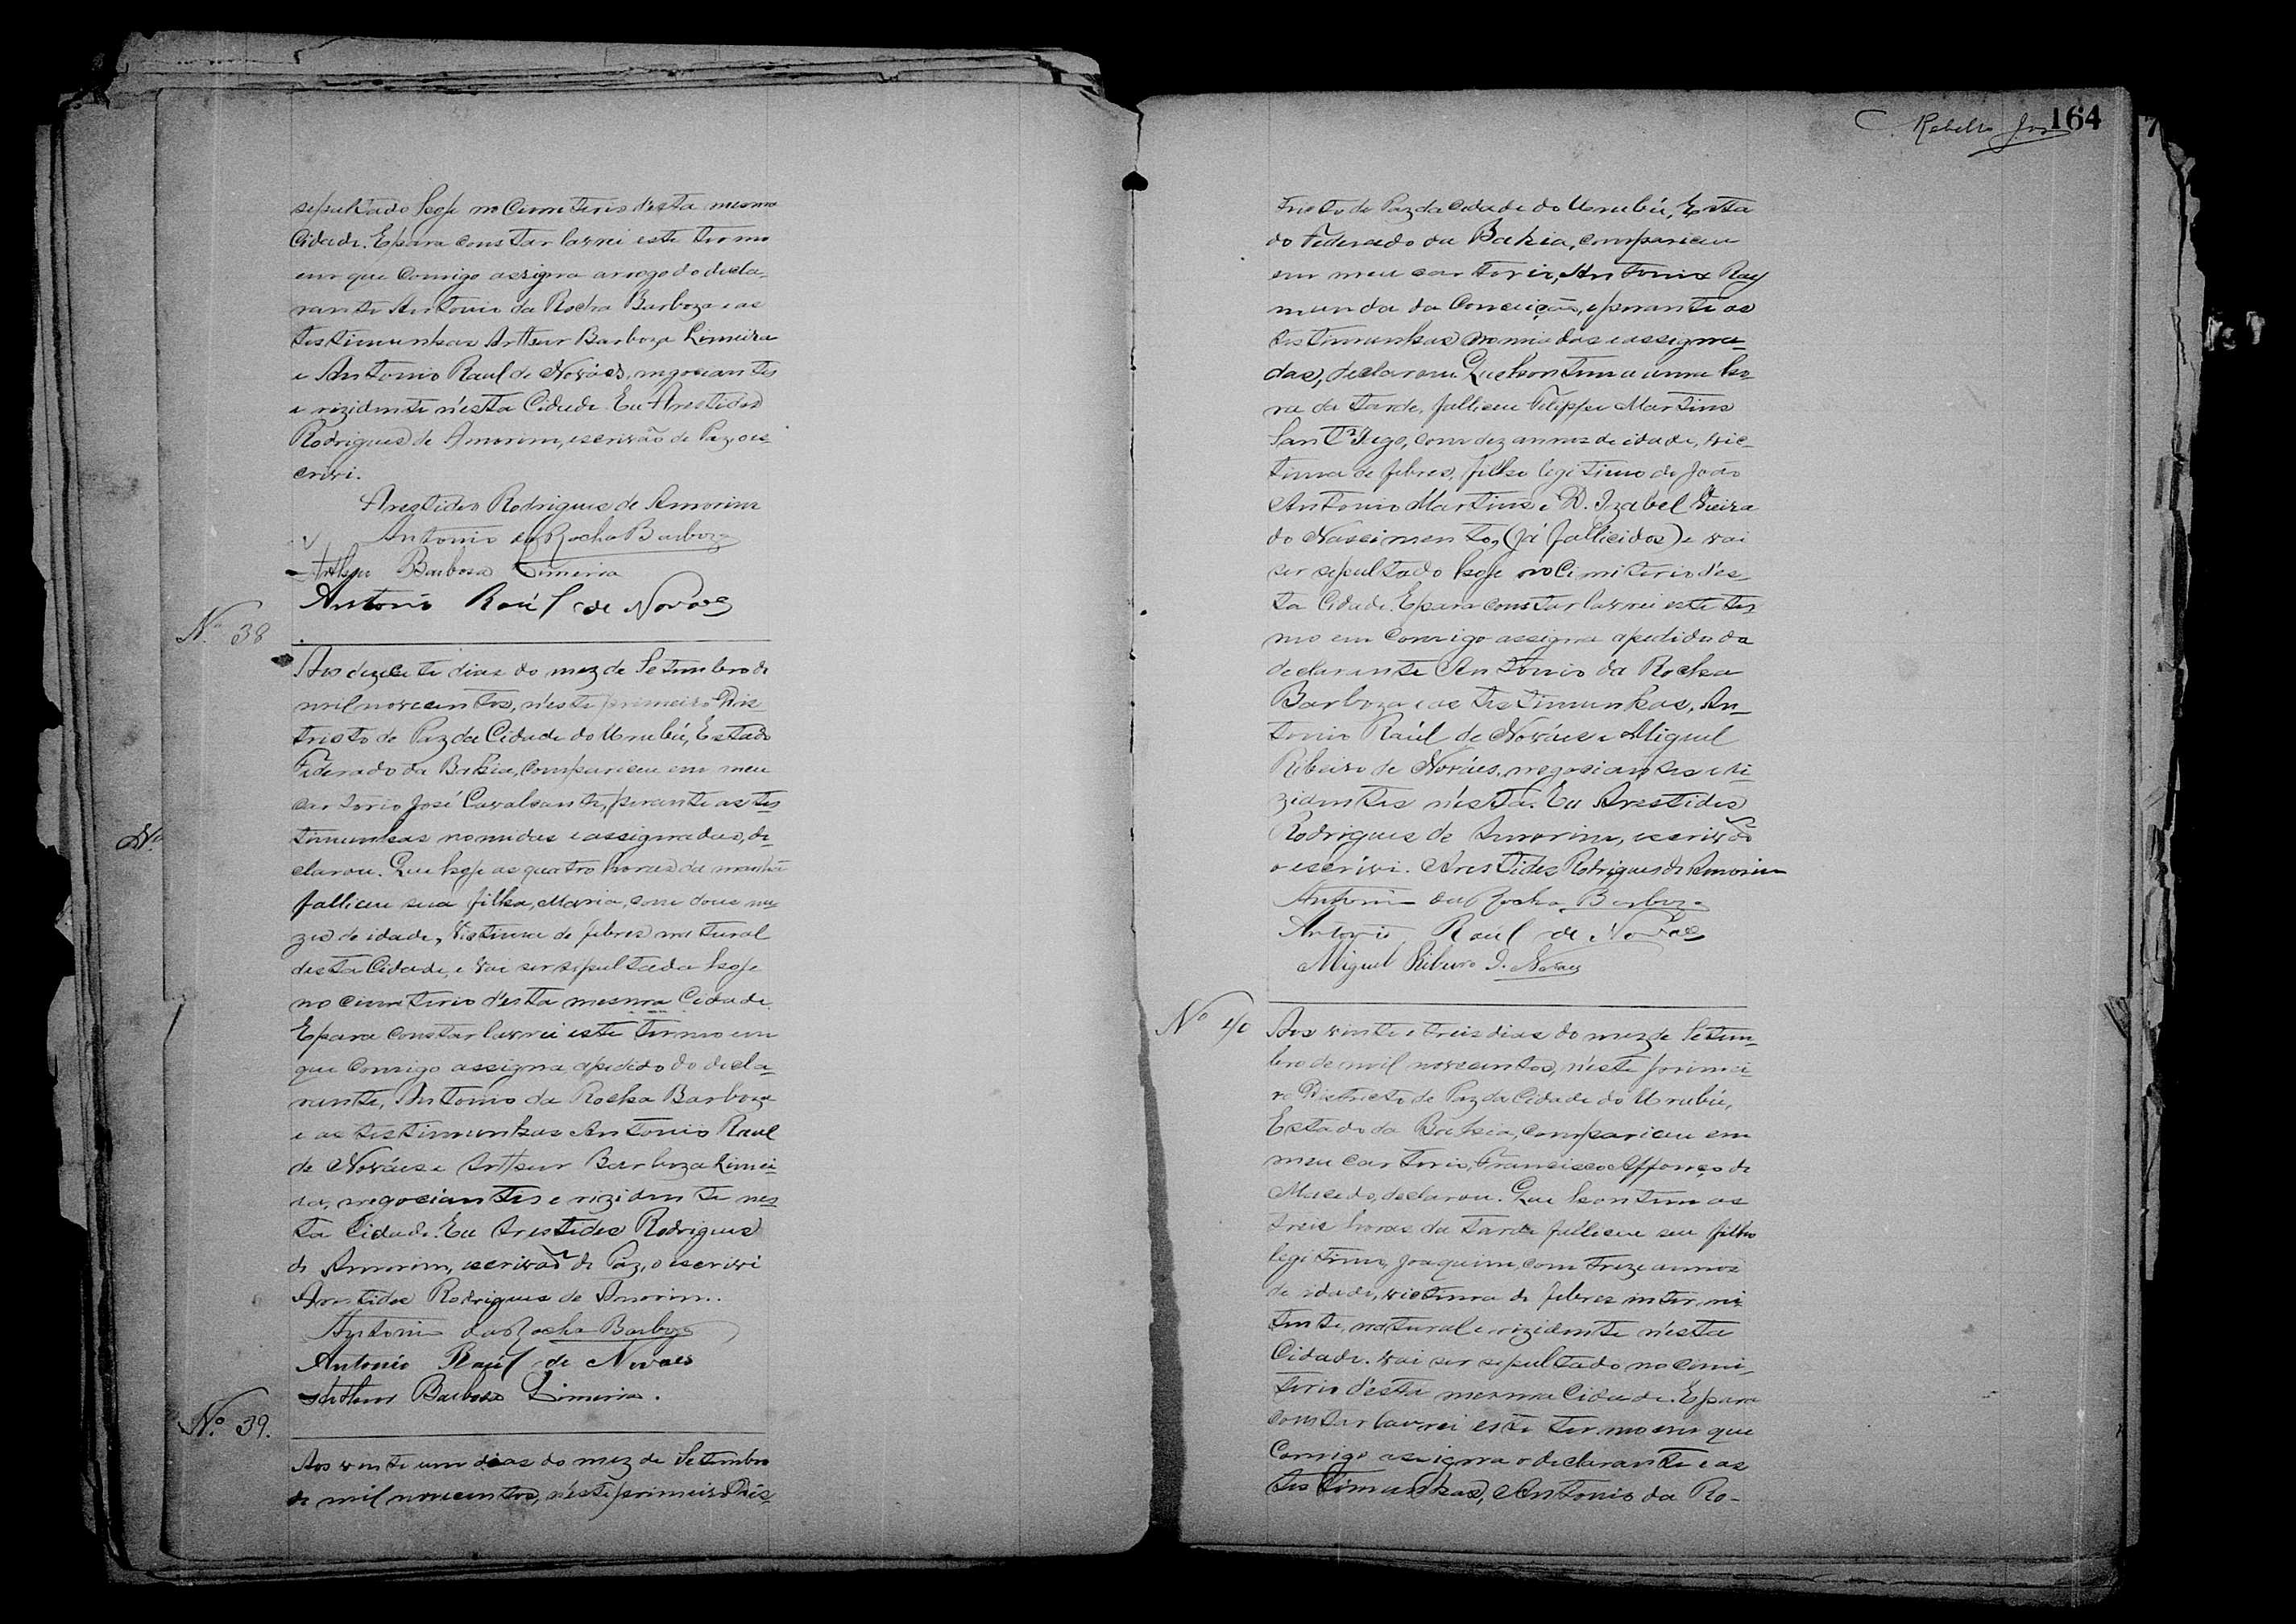 sepultado hoje no Cimeterio d'esta mesma
Cidade. E para constar lavrei este termo
em que Comigo assigna a rogo do decla-
rante Antonio da Rocha Barboza e as
testimunhas Arthur Barboza Limeira
e Antonio Raul de Nováes, negociantes
e rizidente n'esta Cidade. Eu Arestides
Rodrigues de Amorim, escrivão de Paz, o es-
crivi.
Arestides Rodrigues de Amorim
Antonio da Rocha Barboza
Arthur Barbosa Limeira
Antonio Raúl de Novaes
Nº 38
Aos dezecete dias do mez de Setembro de
mil novecentos, n'este primeiro Dis-
tricto de Paz da Cidade do Urubú, Estado
Federado da Bahia, compareceu em meu
cartorio José Cavalcante, perante as tes
timunhas nomidas e assignadas, de-
clarou. Que hoje as quatro horas da manhã
falliceu sua filha, Maria, com dous me
zes de idade, victima de febres natural
desta Cidade, e vai ser sepultada hoje
no cimeterio d'esta mesma Cidade.
E para constar lavrei este termo em
que Comigo assigna, apedido do decla-
rante, Antonio da Rocha Barboza
e as testimunhas Antonio Raul
de Nováes e Arthur Barboza Limei-
ra, negociantes e rizidente nes-
ta Cidade. Eu Arestides Rodrigues
de Amorim, escrivão de Paz, o escrivi
Arestides Rodrigues de Amorim.
Antonio da Rocha Barboza
Antonio Raúl de Novaes
Arthur Barbosa Limeira.
Nº 39.
Aos vinte um dias do mez de Setembro
de mil novecentos, n'este primeiro Dis-
Nº
164
Rebello
tricto de Paz da Cidade do Urubú, Esta
do Federado da Bahia, compareceu
em meu cartorio, Antonia Ray
munda da Conceição, e perante as
testimunhas nomiadas e assigna-
das, declarou. Que hontem a uma ho-
ra da tarde, falliceu Felippe Martins
Sant'Iago, com dez annos de idade, vic-
tima de febres, filho legitimo de João
Antonio Martins e D. Izabel Vieira
do Nascimento, (já fallicidos) e vai
ser sepultado hoje no Cimiterio d'es-
ta Cidade. E para constar lavrei este ter
mo em Comigo assigna apedido da
declarante Antonio da Rocha
Barboza e as testimunhas, An-
tonio Raúl de Nováes e Miguel
Ribeiro de Nováes, negociantes e ri-
zidentes n'esta. Eu Arestides
Rodrigues de Amorim, escrivão
o escrivi. Arestides Rodrigues de Amorim
Antonio da Rocha Barboza
Antonio Raúl de Novaes
Miguel Ribeiro d. Novaes
Nº 40
Aos vinte e treis dias do mez de Setem-
bro de mil novecentos, n'este primei-
ro Districto de Paz da Cidade do Urubú,
Estado da Bahia, compareceu em
meu cartorio, Francisco Affonço de
Macedo, declarou. Que hontem as
treis horas da tarde falliceu seu filho
legitimo, Joaquim, com treze annos
de idade, victima de febres inter mi-
tente, natural e rizidente n'esta
Cidade. vai ser sepultado no cimi-
terio d'esta mesma Cidade. E para
constar lavrei este termo em que
Comigo assigna o declarante e as
testimunhas, Antonio da Ro-